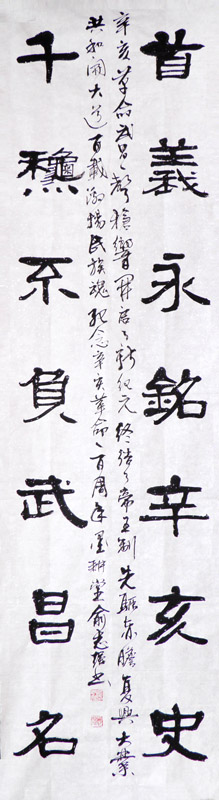 首義永銘辛亥史
辛亥革命武昌聲槍響開启了新纪元终结了帝王制先驅赤膽复興大業
共和開大道百載激揚民族魂纪念辛亥革命一百周年墨耕堂俞志書
千龝不負武昌名